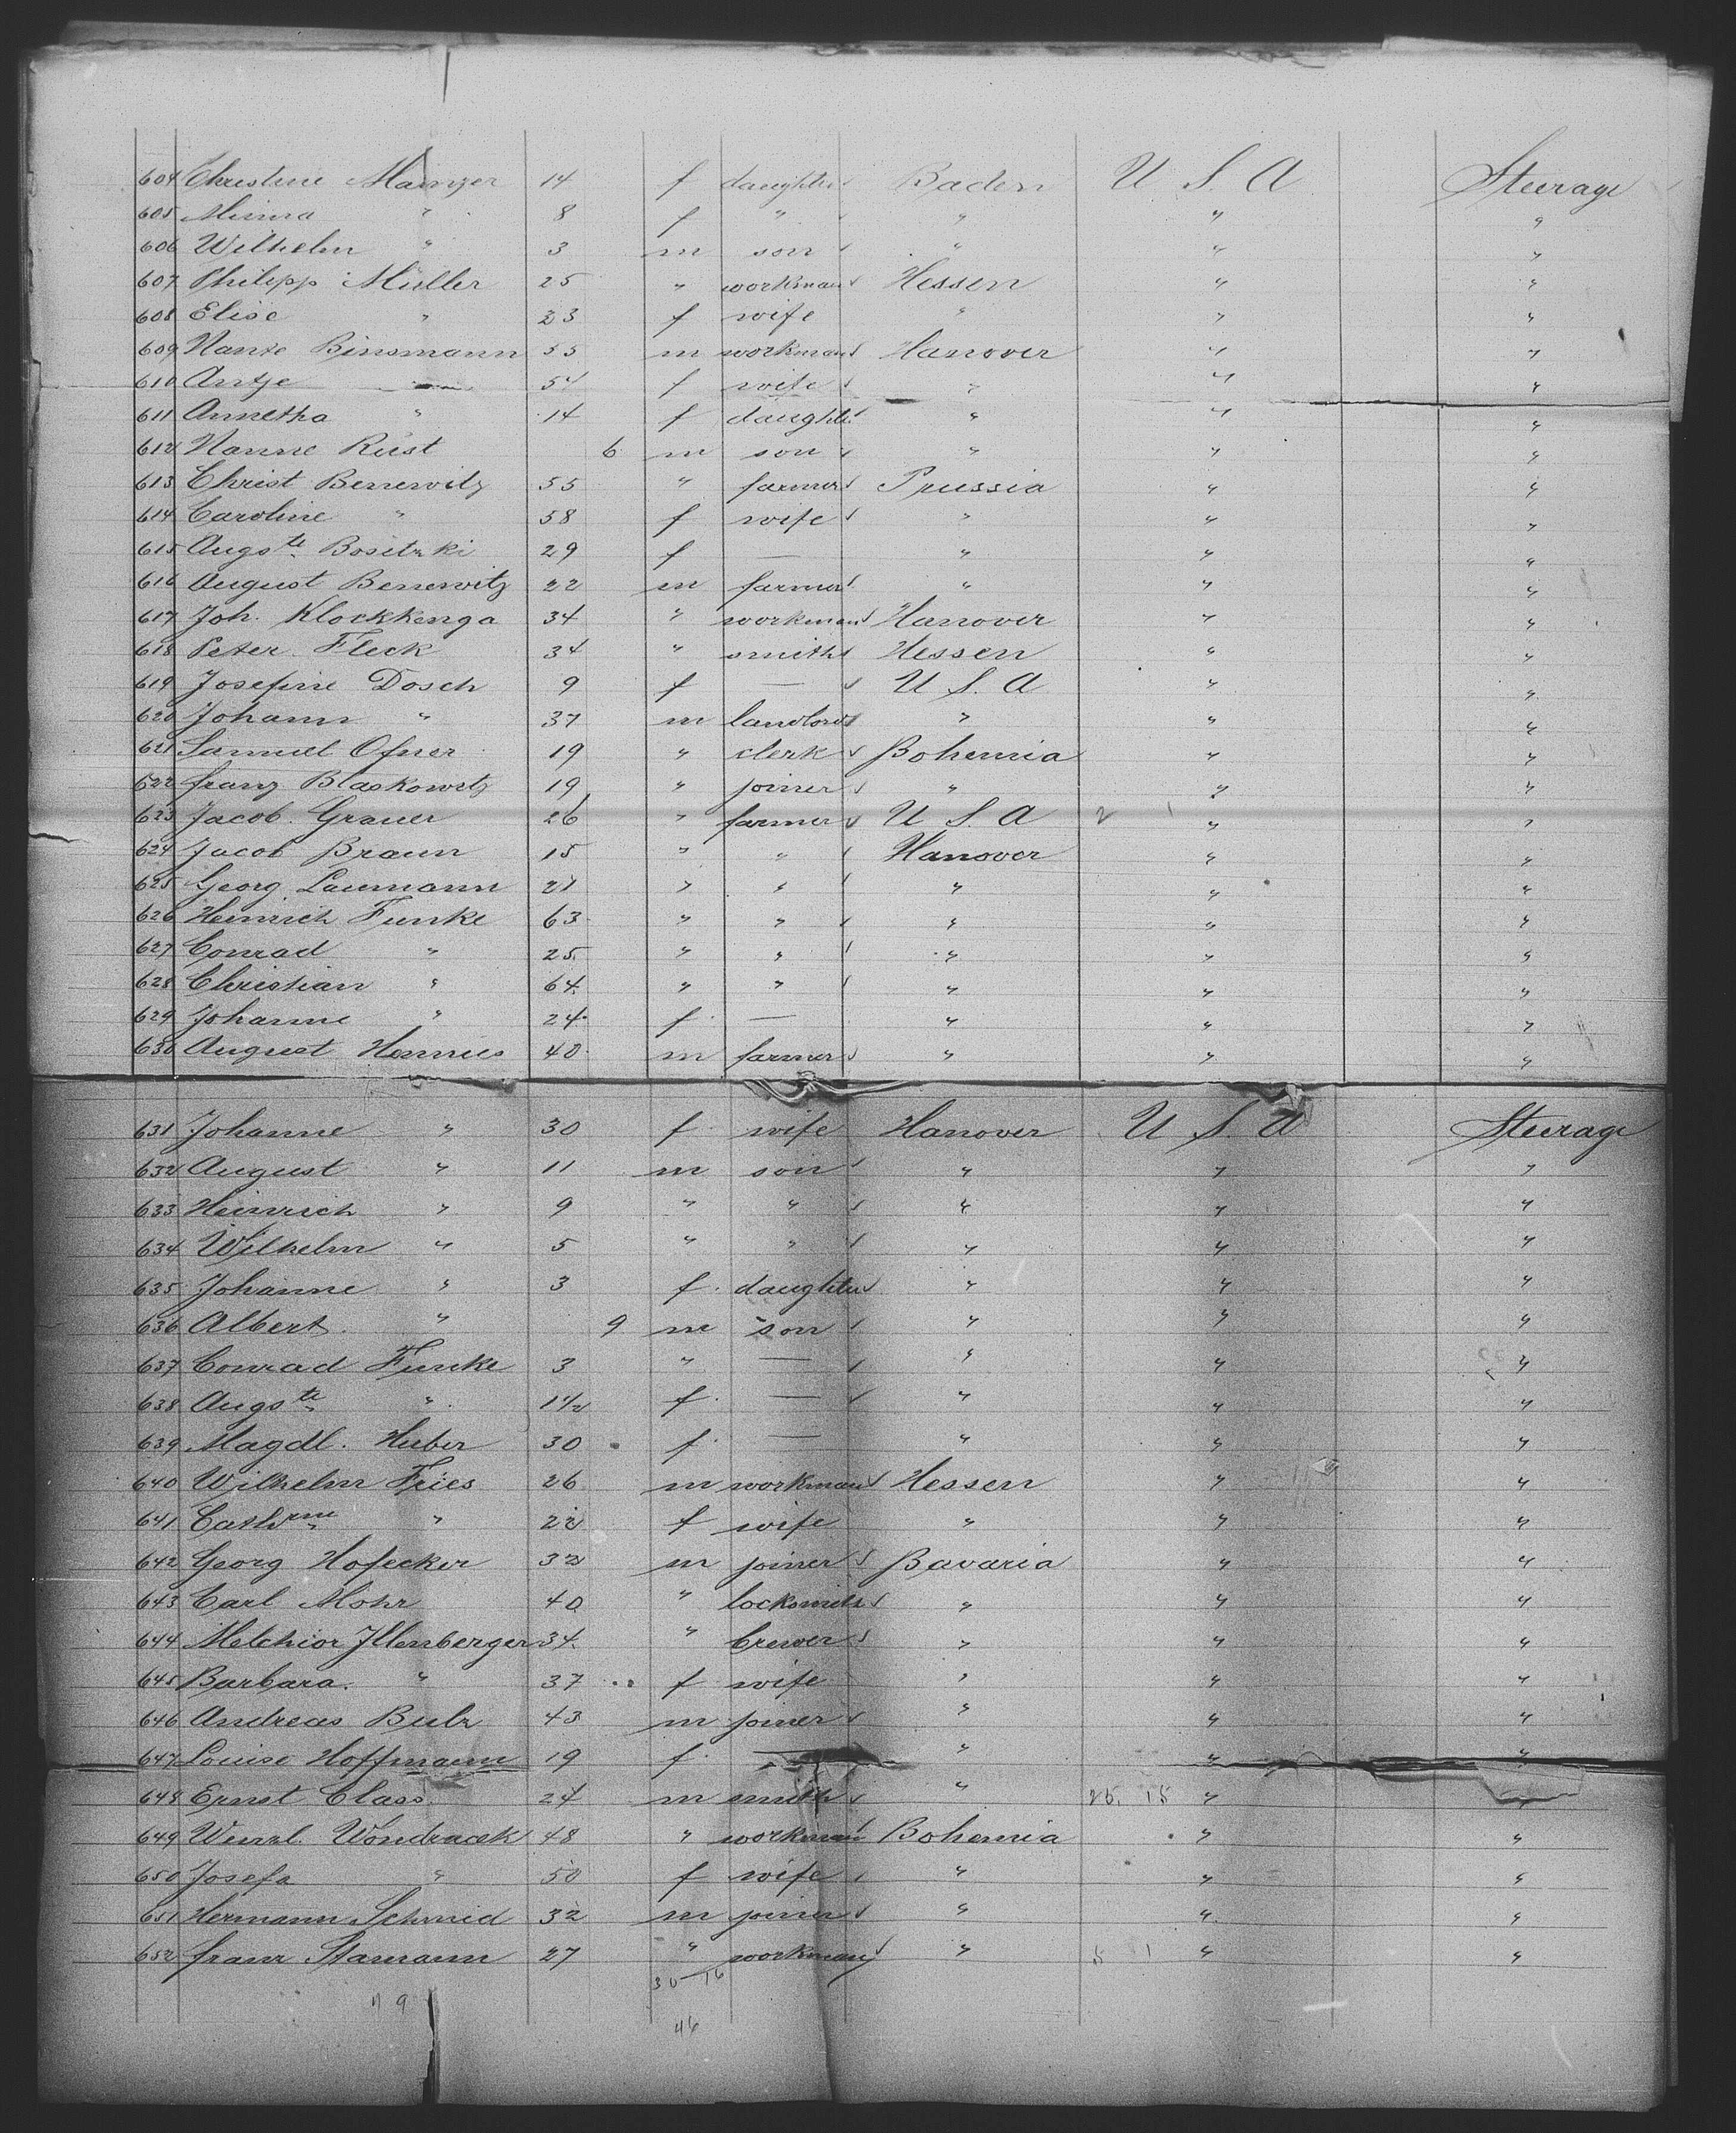 604 Christine Mainzer 14 f daughter Baden U S. A Steerage
605 Minna " 8 f " " " "
606 Wilhelm " 3 m son " " "
607 Philipp Müller 25 " workman Hessen " "
608 Elise " 23 f wife " " "
609 Nanne Binsmann 55 m workman Hanover " "
610 Antje — 54 f wife " " "
611 Annetha " 14 f daughter " " "
612 Nanne Rust 6 m son " " "
613 Christ Benewitz 55 " farmer Prussia " "
614 Caroline " 58 f wife " " "
615 Augste Bositzki 29 f — " " "
616 August Benewitz 22 m farmer " " "
617 Joh. Klockkenga 34 " workman Hanover " "
618 Peter Fleck 34 " smith Hessen " "
619 Josefine Dosch 9 f — U S. A " "
620 Johann " 37 m landlord " " "
621 Samuel Ofner 19 " clerk Bohemia " "
622 Franz Blaskowitz 19 " joiner " " "
623 Jacob Grauer 26 " farmer U S. A 2 1 " "
624 Jacob Braun 15 " " Hanover " "
625 Georg Laumann 21 " " " " "
626 Heinrich Funke 63 " " " " "
627 Conrad " 25 " " " " "
628 Christian " 64 " " " " "
629 Johanne " 24 f — " " "
630 August Hennies 40 m farmer " " "
631 Johanne " 30 f wife Hanover U S. A Steerage
632 August " 11 m son " " "
633 Heinrich " 9 " " " " "
634 Wilhelm " 5 " " " " "
635 Johanne " 3 f daughter " " "
636 Albert " 9 m son " " "
637 Conrad Funke 3 " — " " "
638 Augste " 1 1/2 f — " " "
639 Magdl. Huber 30 f — " " "
640 Wilhelm Fries 26 m workman Hessen " "
641 Cathrne " 22 f wife " " "
642 Georg Hofecker 32 m joiner Bavaria " "
643 Carl Mohr 40 " locksmith " " "
644 Melchior Illenberger 34 " brewer " " "
645 Barbara " 37 f wife " " "
646 Andreas Bulz 43 m joiner " " "
647 Louise Hoffmann 19 f — " " "
648 Ernst Class 24 m smith " 26. 15 " "
649 Wenzl. Wondracek 48 " workman Bohemia " "
650 Josefa " 50 f wife " " "
651 Hermann Schmid 32 m joiner " " "
652 Franz Stamann 27 " workman " 5 1 " "
30 16
49
46